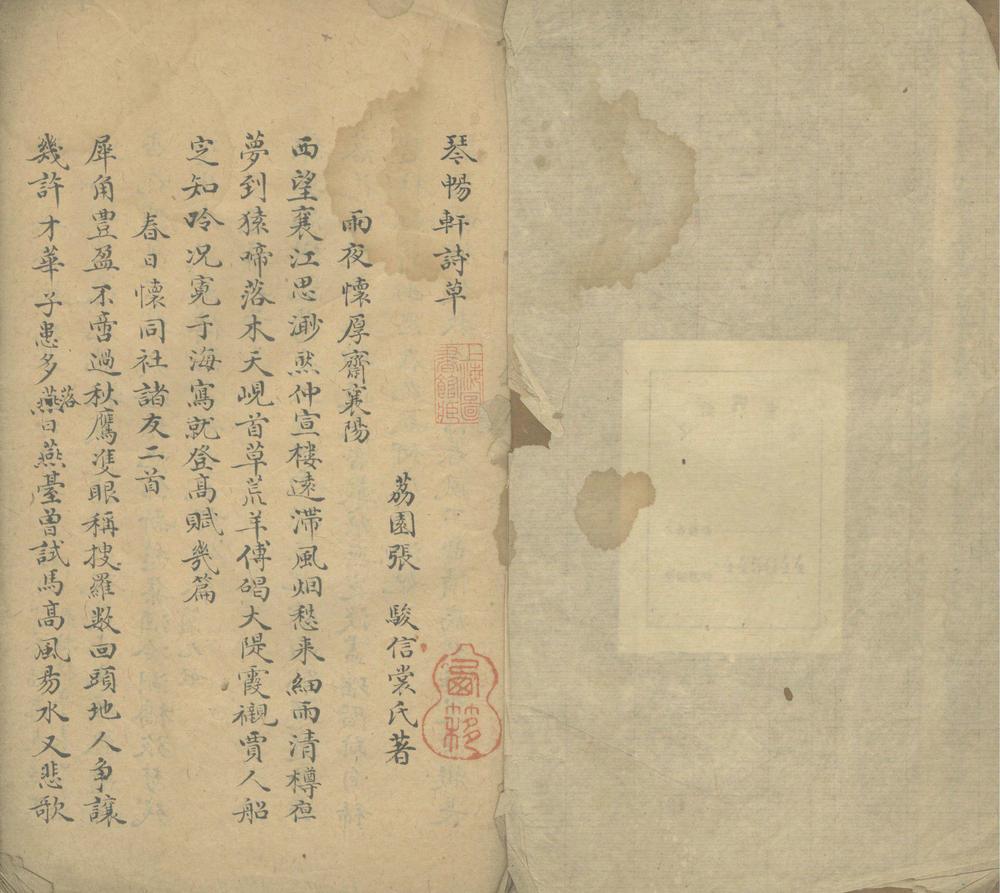 琴暢軒詩草
上海圖書館藏
荔園張 駿信裳氏著
雨夜懷厚齋襄陽
西望襄江思渺然仲宣樓遠滯風烟愁来細雨清樽夜
夢到猿啼落木天峴首草荒羊傅碣大隄霞襯賈人船
定知吟况寛于海寫就登高賦幾篇
春日懷同社諸友二首
犀角豐盈不啻過秋鷹隻眼稱搜羅数回頭地人争讓
幾許才華子患多落日燕臺曾試馬高風易水又悲歌